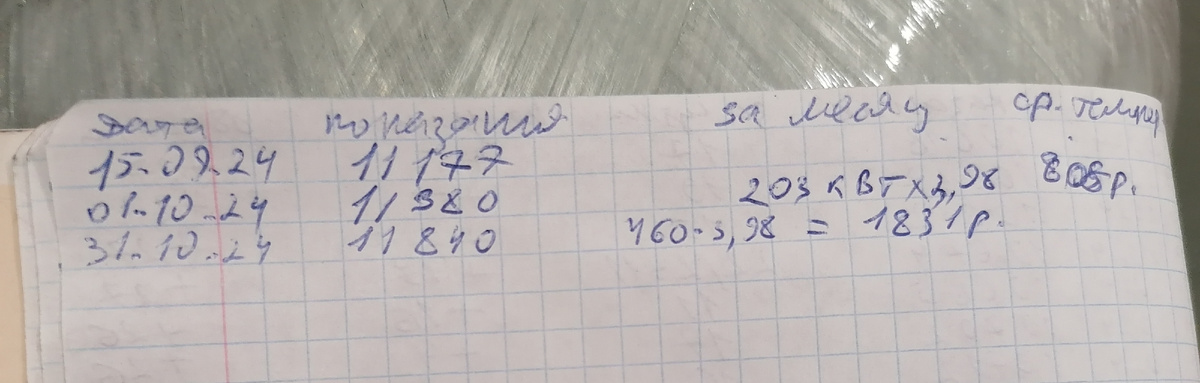 Дата показания за месяц ср. темпер
15.09.24 11177
01.10.24 11380 203 кВт х 3,98 808р.
31.10.24 11840 460·3,98 = 1831р.